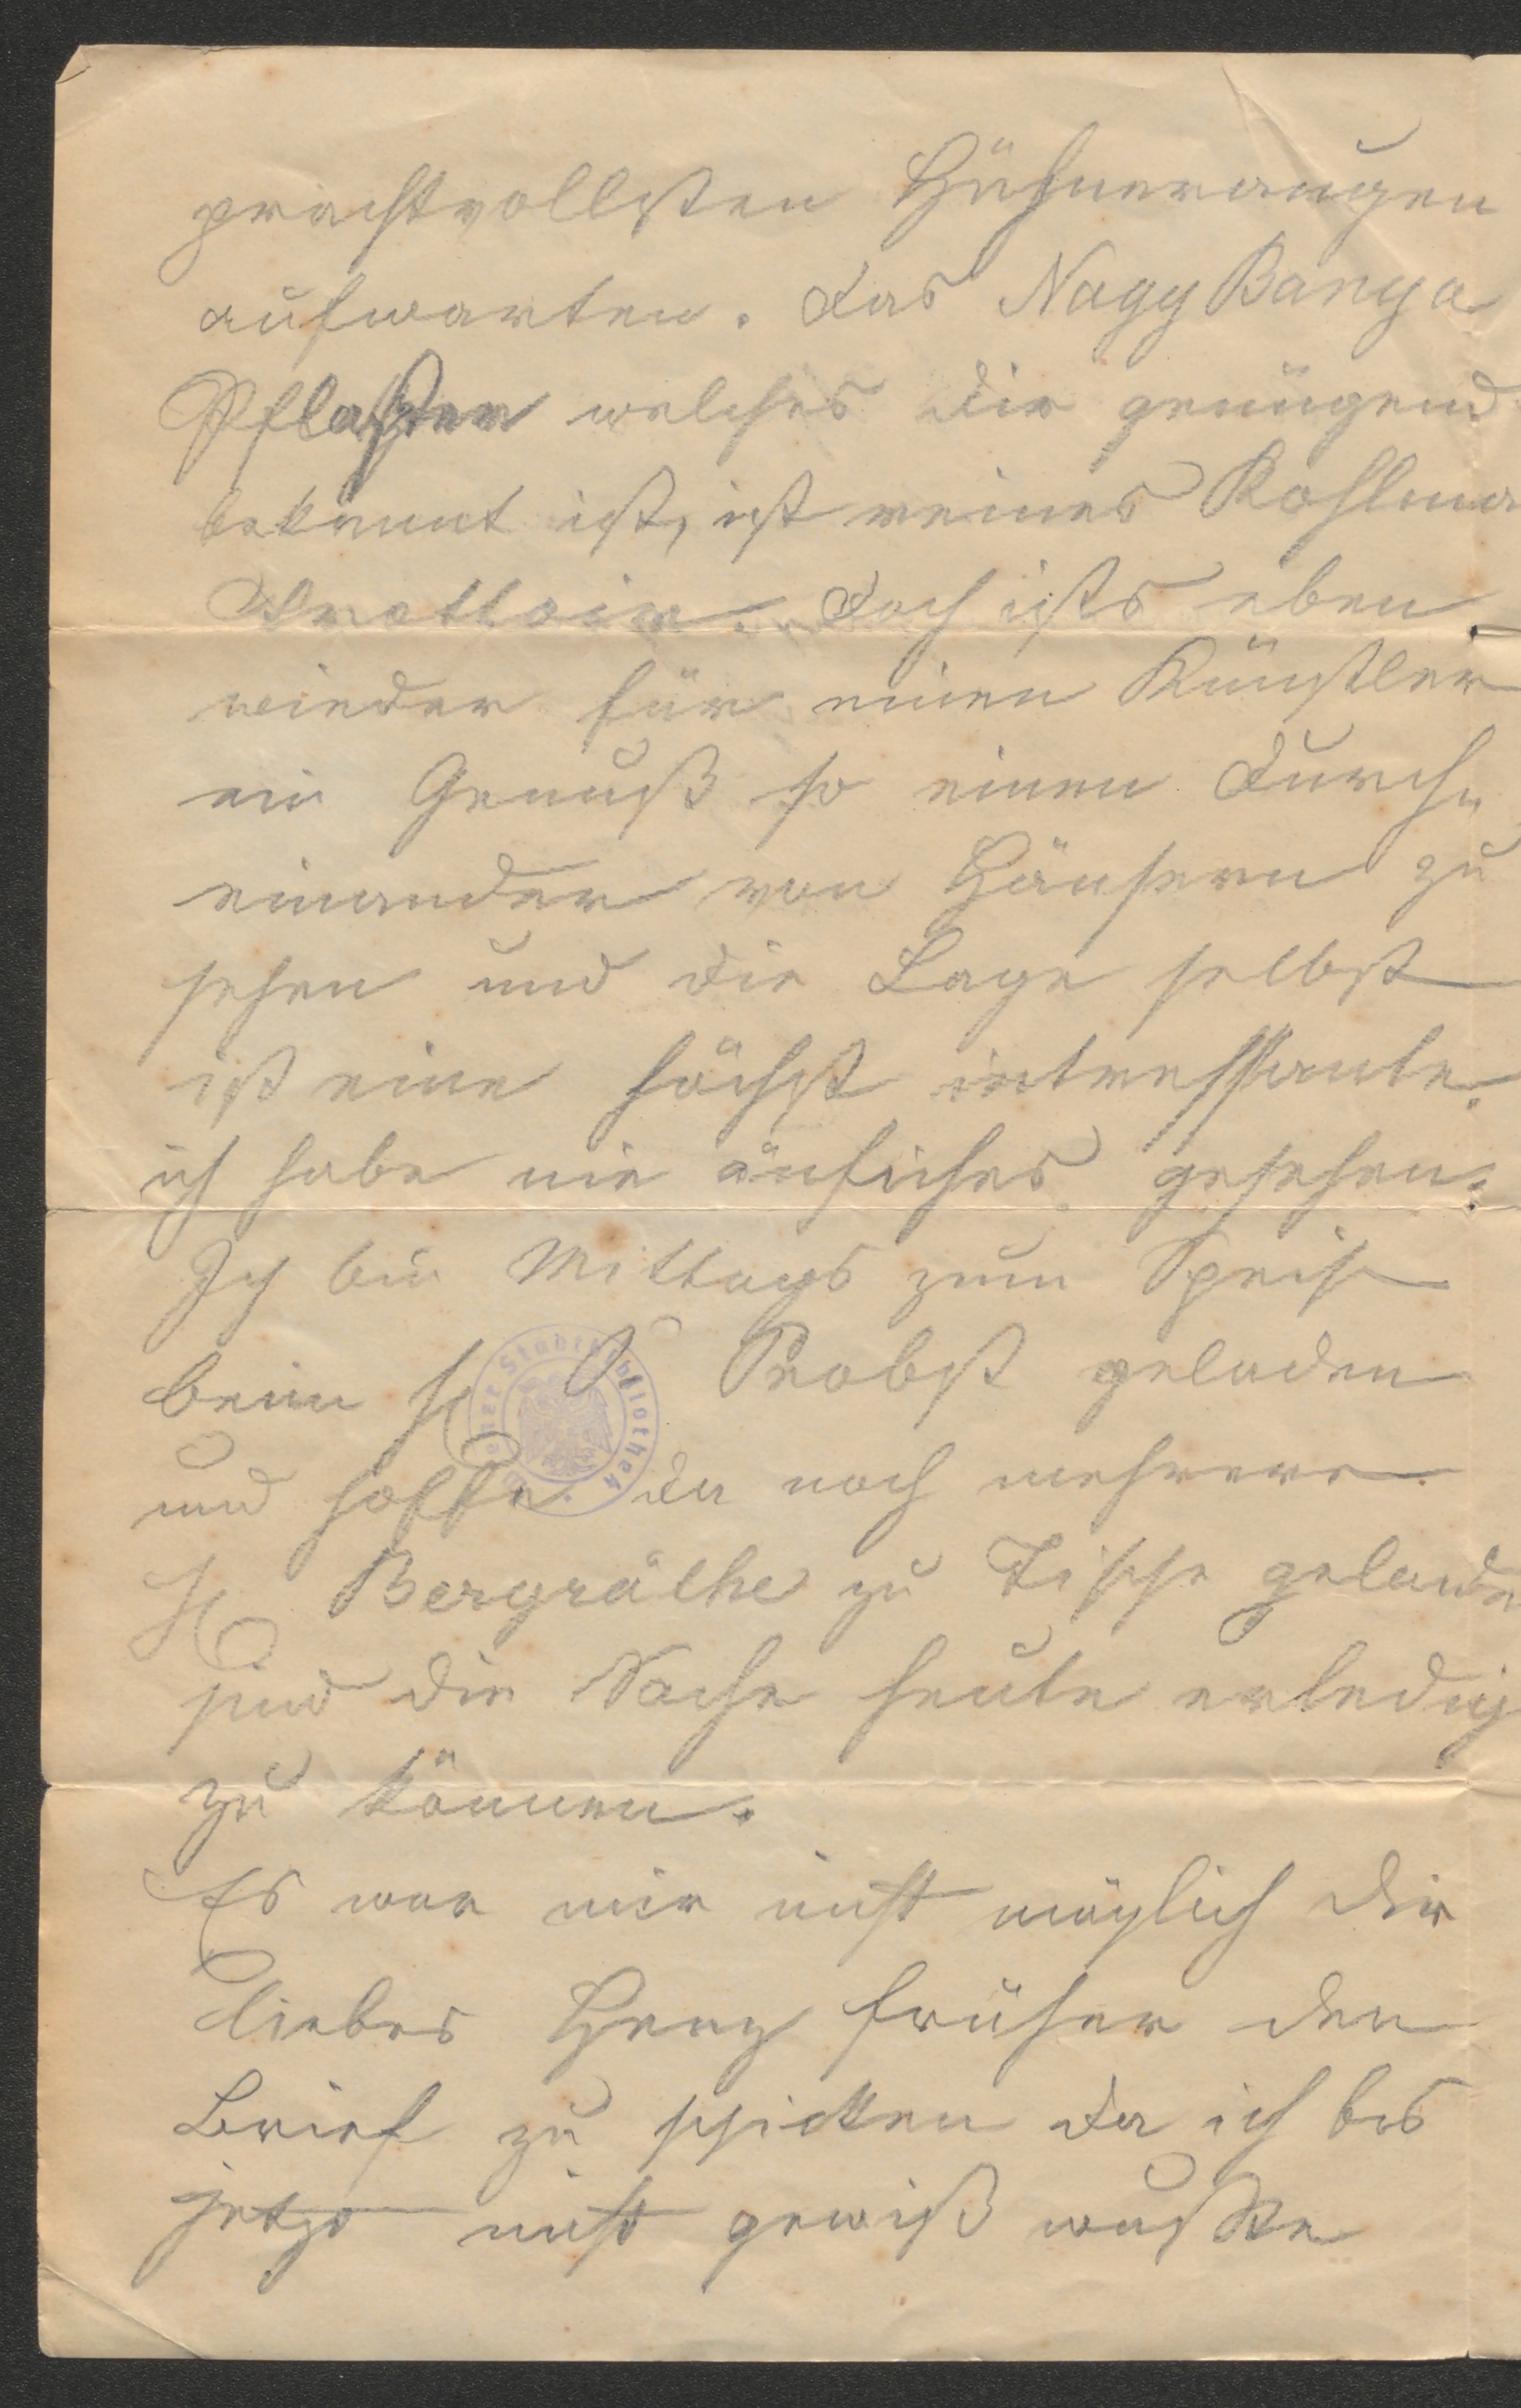 prachtvollsten Hühneraugen
aufwarten. Das Nagy Banya
Pflaster welches dir genügend
bekannt ist, ist reines Kohlma
Trottoir. Doch ists eben
wieder für einen Künstler
ein Genuß so einen Durch„
einander von Häusern zu
sehen und die Lage selbst
ist eine höchst intressante.
ich habe nie änliches gesehen.
Ich bin Mittags zum Speise
beim H Probst geladen
und hoffe da noch mehrere
H Bergräthe zu Tische gelade
sind die Sache heute erledig
zu können.
Es war mir nicht möglich dir
liebes Herz früher den
Brief zu schicken da ich bis
jetzt nicht gewiß wußte